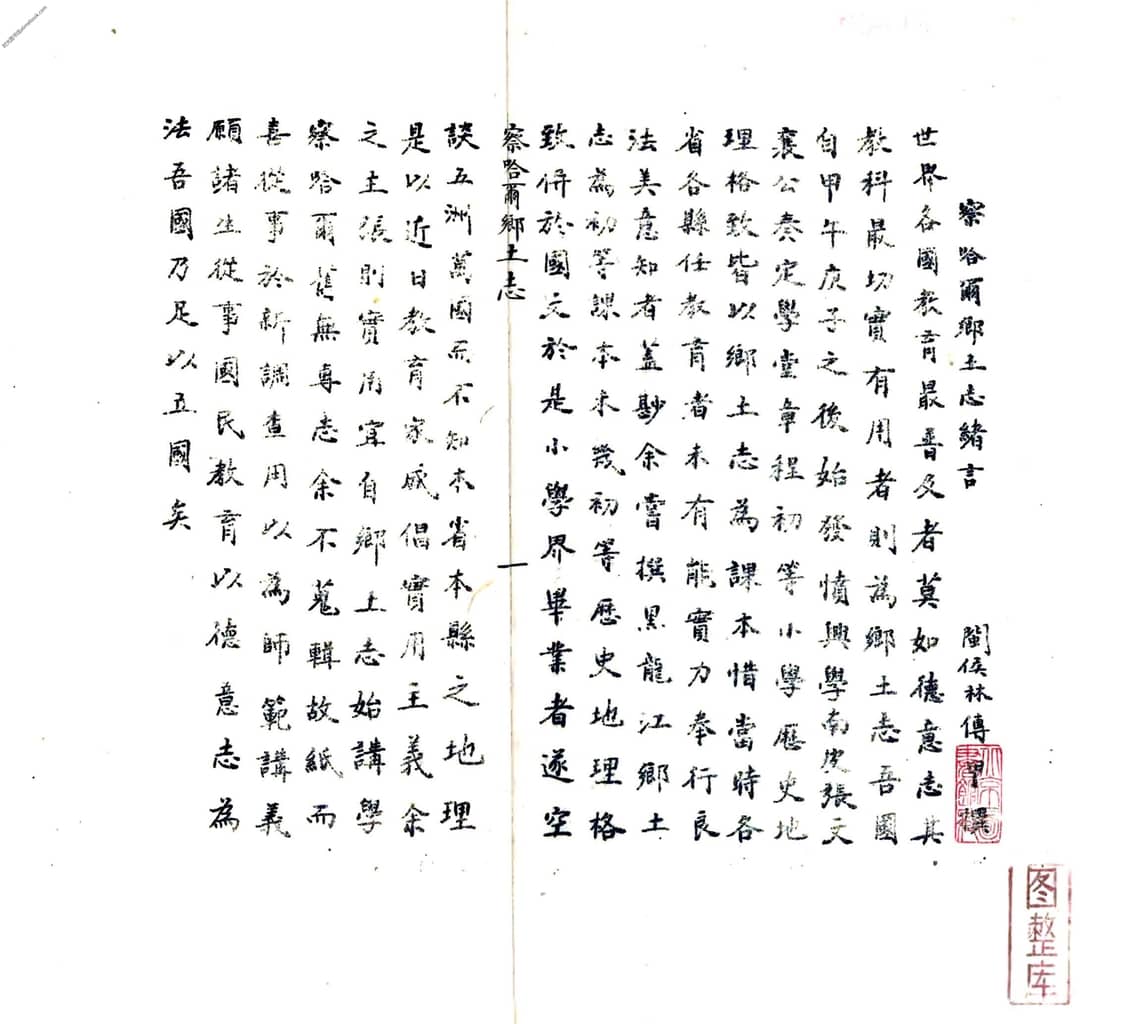 察哈爾鄉土志緒言
閩侯林傳甲撰
世界各國教育最普及者莫如德意志其
教科最切實有用者則為鄉土志吾國
自甲午庚子之後始發憤興學南皮張文
襄公奏定學堂章程初等小學歷史地
理格致皆以鄉土志為課本惜當時各
省各縣任教育者未有能實力奉行良
法美意知者蓋尠余嘗撰黑龍江鄉土
志為初等課本未幾初等歷史地理格
致併於國文於是小學界畢業者遂空
察哈爾鄉土志 一
談五洲萬國而不知本省本縣之地理
是以近日教育家咸倡實用主義余
之主張則實用宜自鄉土志始講學
察哈爾舊無專志余不蒐輯故紙而
喜從事於新調查用以為師範講義
願諸生從事國民教育以德意志為
法吾國乃足以五國矣
图整库